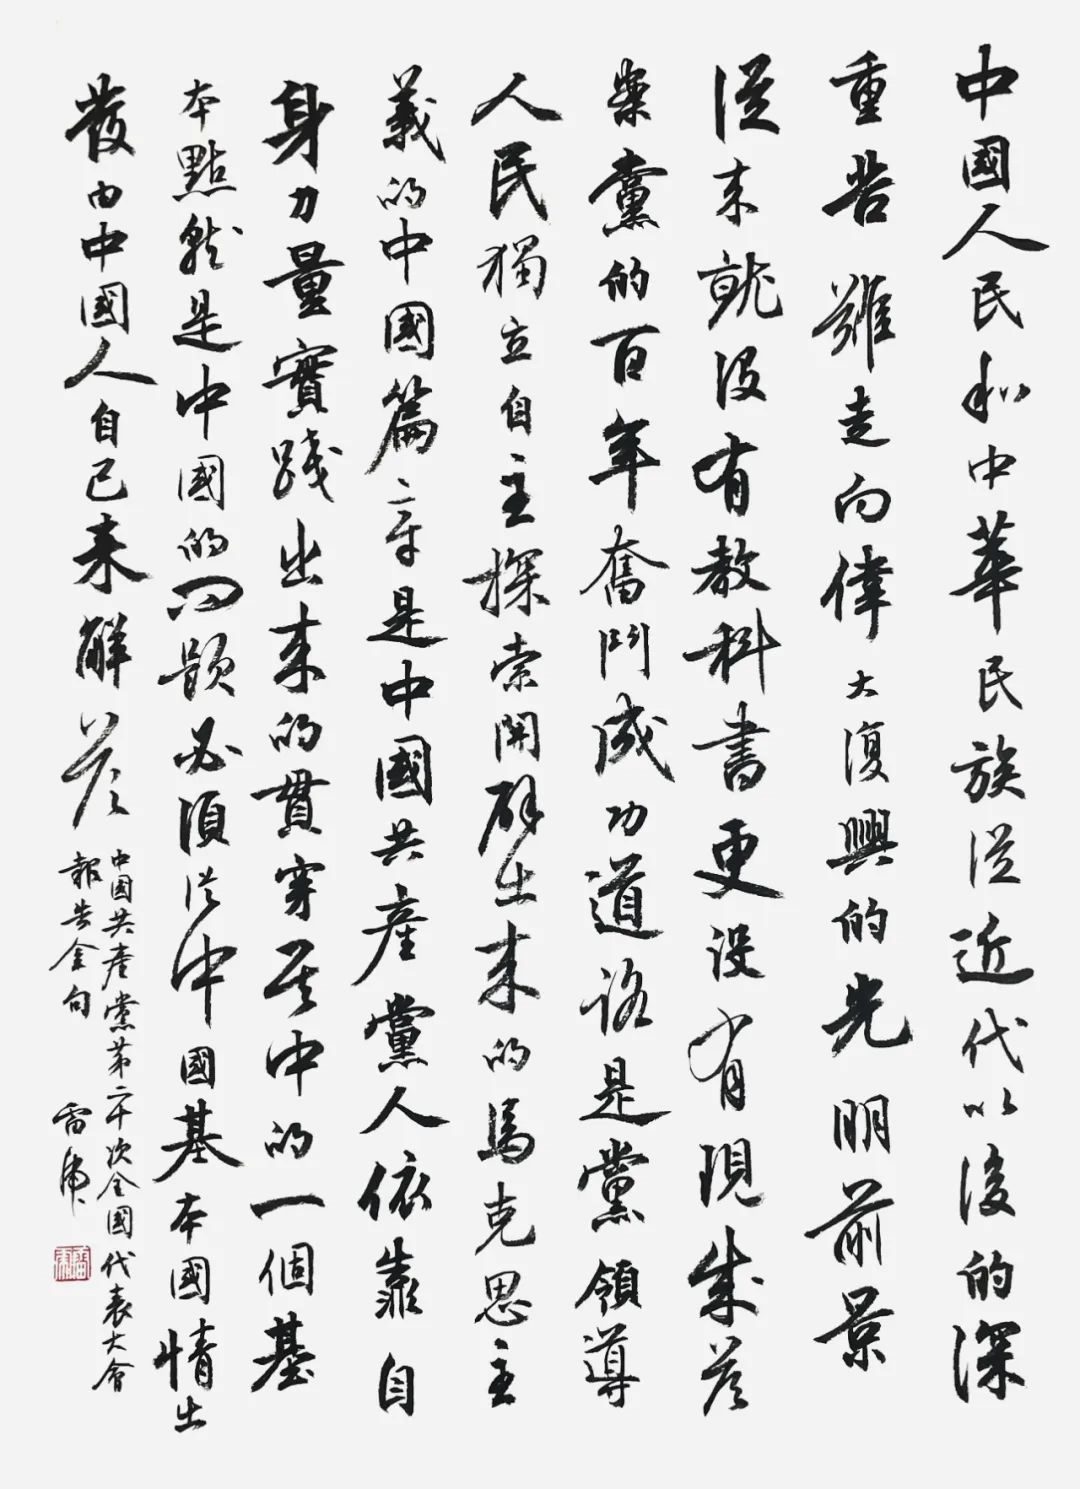 中國人民和中華民族從近代以後的深
重苦難走向偉大復興的光明前景
從來就沒有教科書更沒有現成答
案黨的百年奮鬥成功道路是黨領導
人民獨立自主探索開闢出來的馬克思主
義的中國篇章是中國共產黨人依靠自
身力量實踐出來的貫穿其中的一個基
本點就是中國的問題必須從中國基本國情出
發由中國人自己來解答
中國共產黨第二十次全國代表大會
報告金句
雷虎